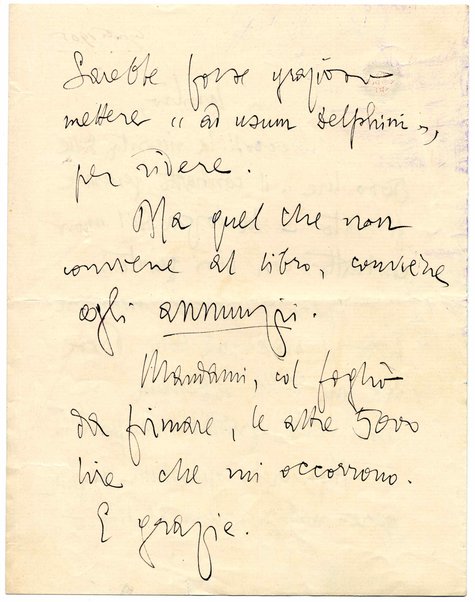 Sarebbe forse grazioso
mettere "ad usum delphini",
per ridere.
Ma quel che non
conviene al libro, conviene
agli annunzii.
Mandami, col foglio
da firmare, le altre 5000
lire che mi occorrono.
E grazie.